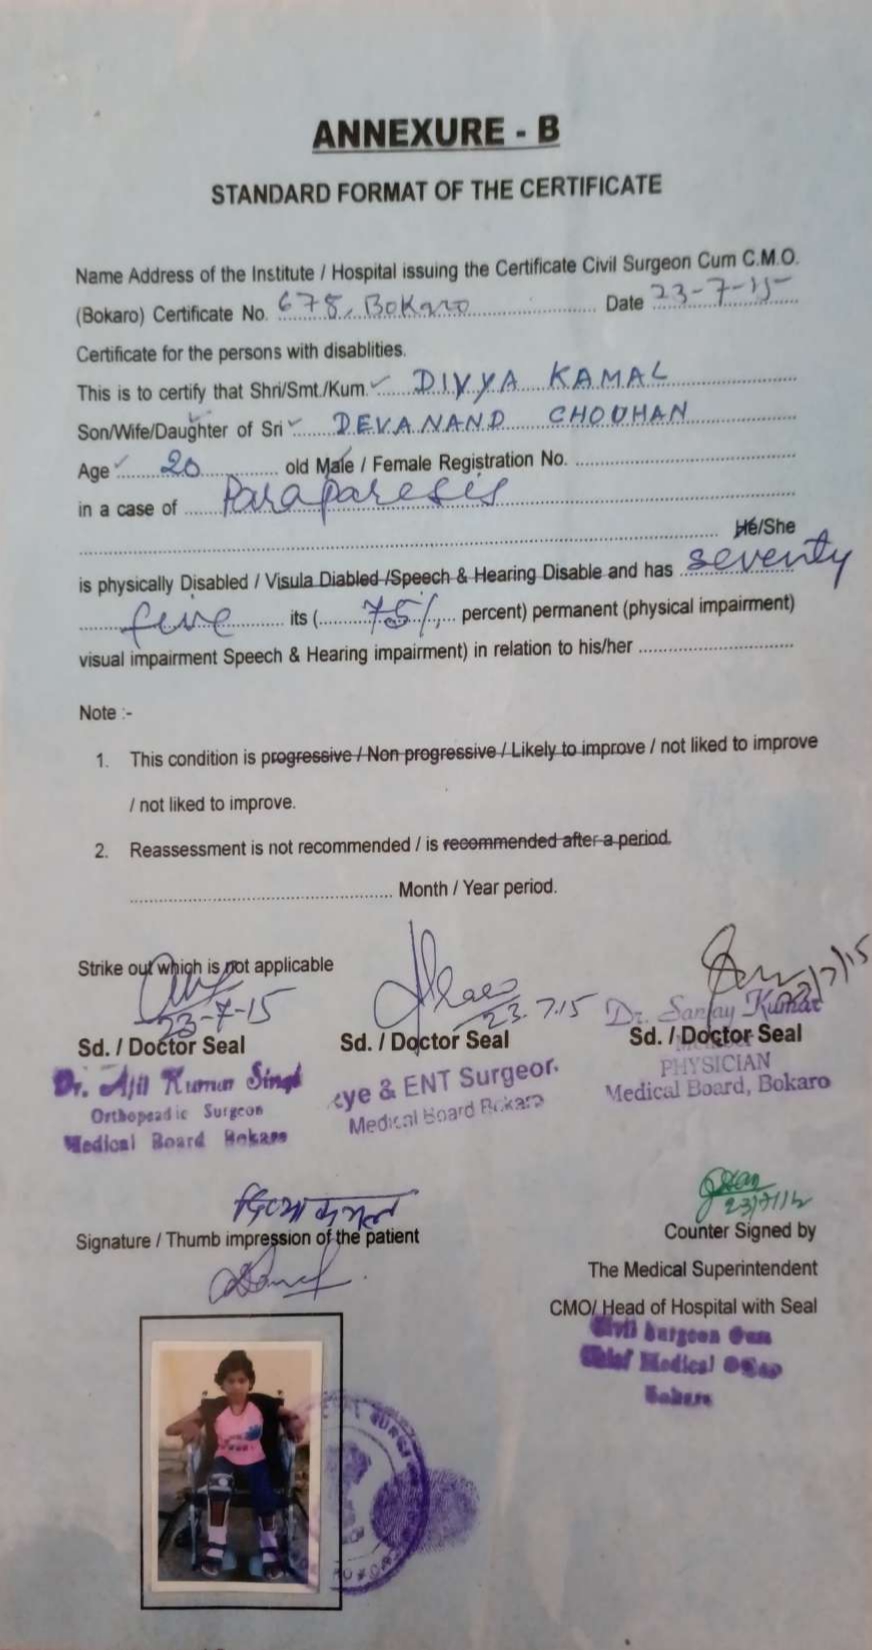 ANNEXURE - B
STANDARD FORMAT OF THE CERTIFICATE
Name Address of the Institute / Hospital issuing the Certificate Civil Surgeon Cum C.M.O.
(Bokaro) Certificate No. 678, Bokaro Date 23-7-15
Certificate for the persons with disablities.
This is to certify that Shri/Smt./Kum. DIVYA KAMAL
Son/Wife/Daughter of Sri DEVANAND CHOUHAN
Age 20 old Male / Female Registration No.
in a case of Paraparesis
He/She
is physically Disabled / Visula Diabled /Speech & Hearing Disable and has seventy
five its (75%, percent) permanent (physical impairment)
visual impairment Speech & Hearing impairment) in relation to his/her
Note :-
1. This condition is progressive / Non progressive / Likely to improve / not liked to improve
/ not liked to improve.
2. Reassessment is not recommended / is recommended after a period.
Month / Year period.
Strike out which is not applicable
23-7-15
23.7.15
23/7/15
Dr. Sanjay Kumar
Sd. / Doctor Seal
Sd. / Doctor Seal
Sd. / Doctor Seal
Dr. Ajit Kumar Singh
Orthopeadic Surgeon
Medical Board Bokaro
Eye & ENT Surgeon.
Medical Board Bokaro
PHYSICIAN
Medical Board, Bokaro
दिव्या कमल
Signature / Thumb impression of the patient
Counter Signed by
The Medical Superintendent
CMO/ Head of Hospital with Seal
Civil Surgeon Cum
Chief Medical
Bokaro